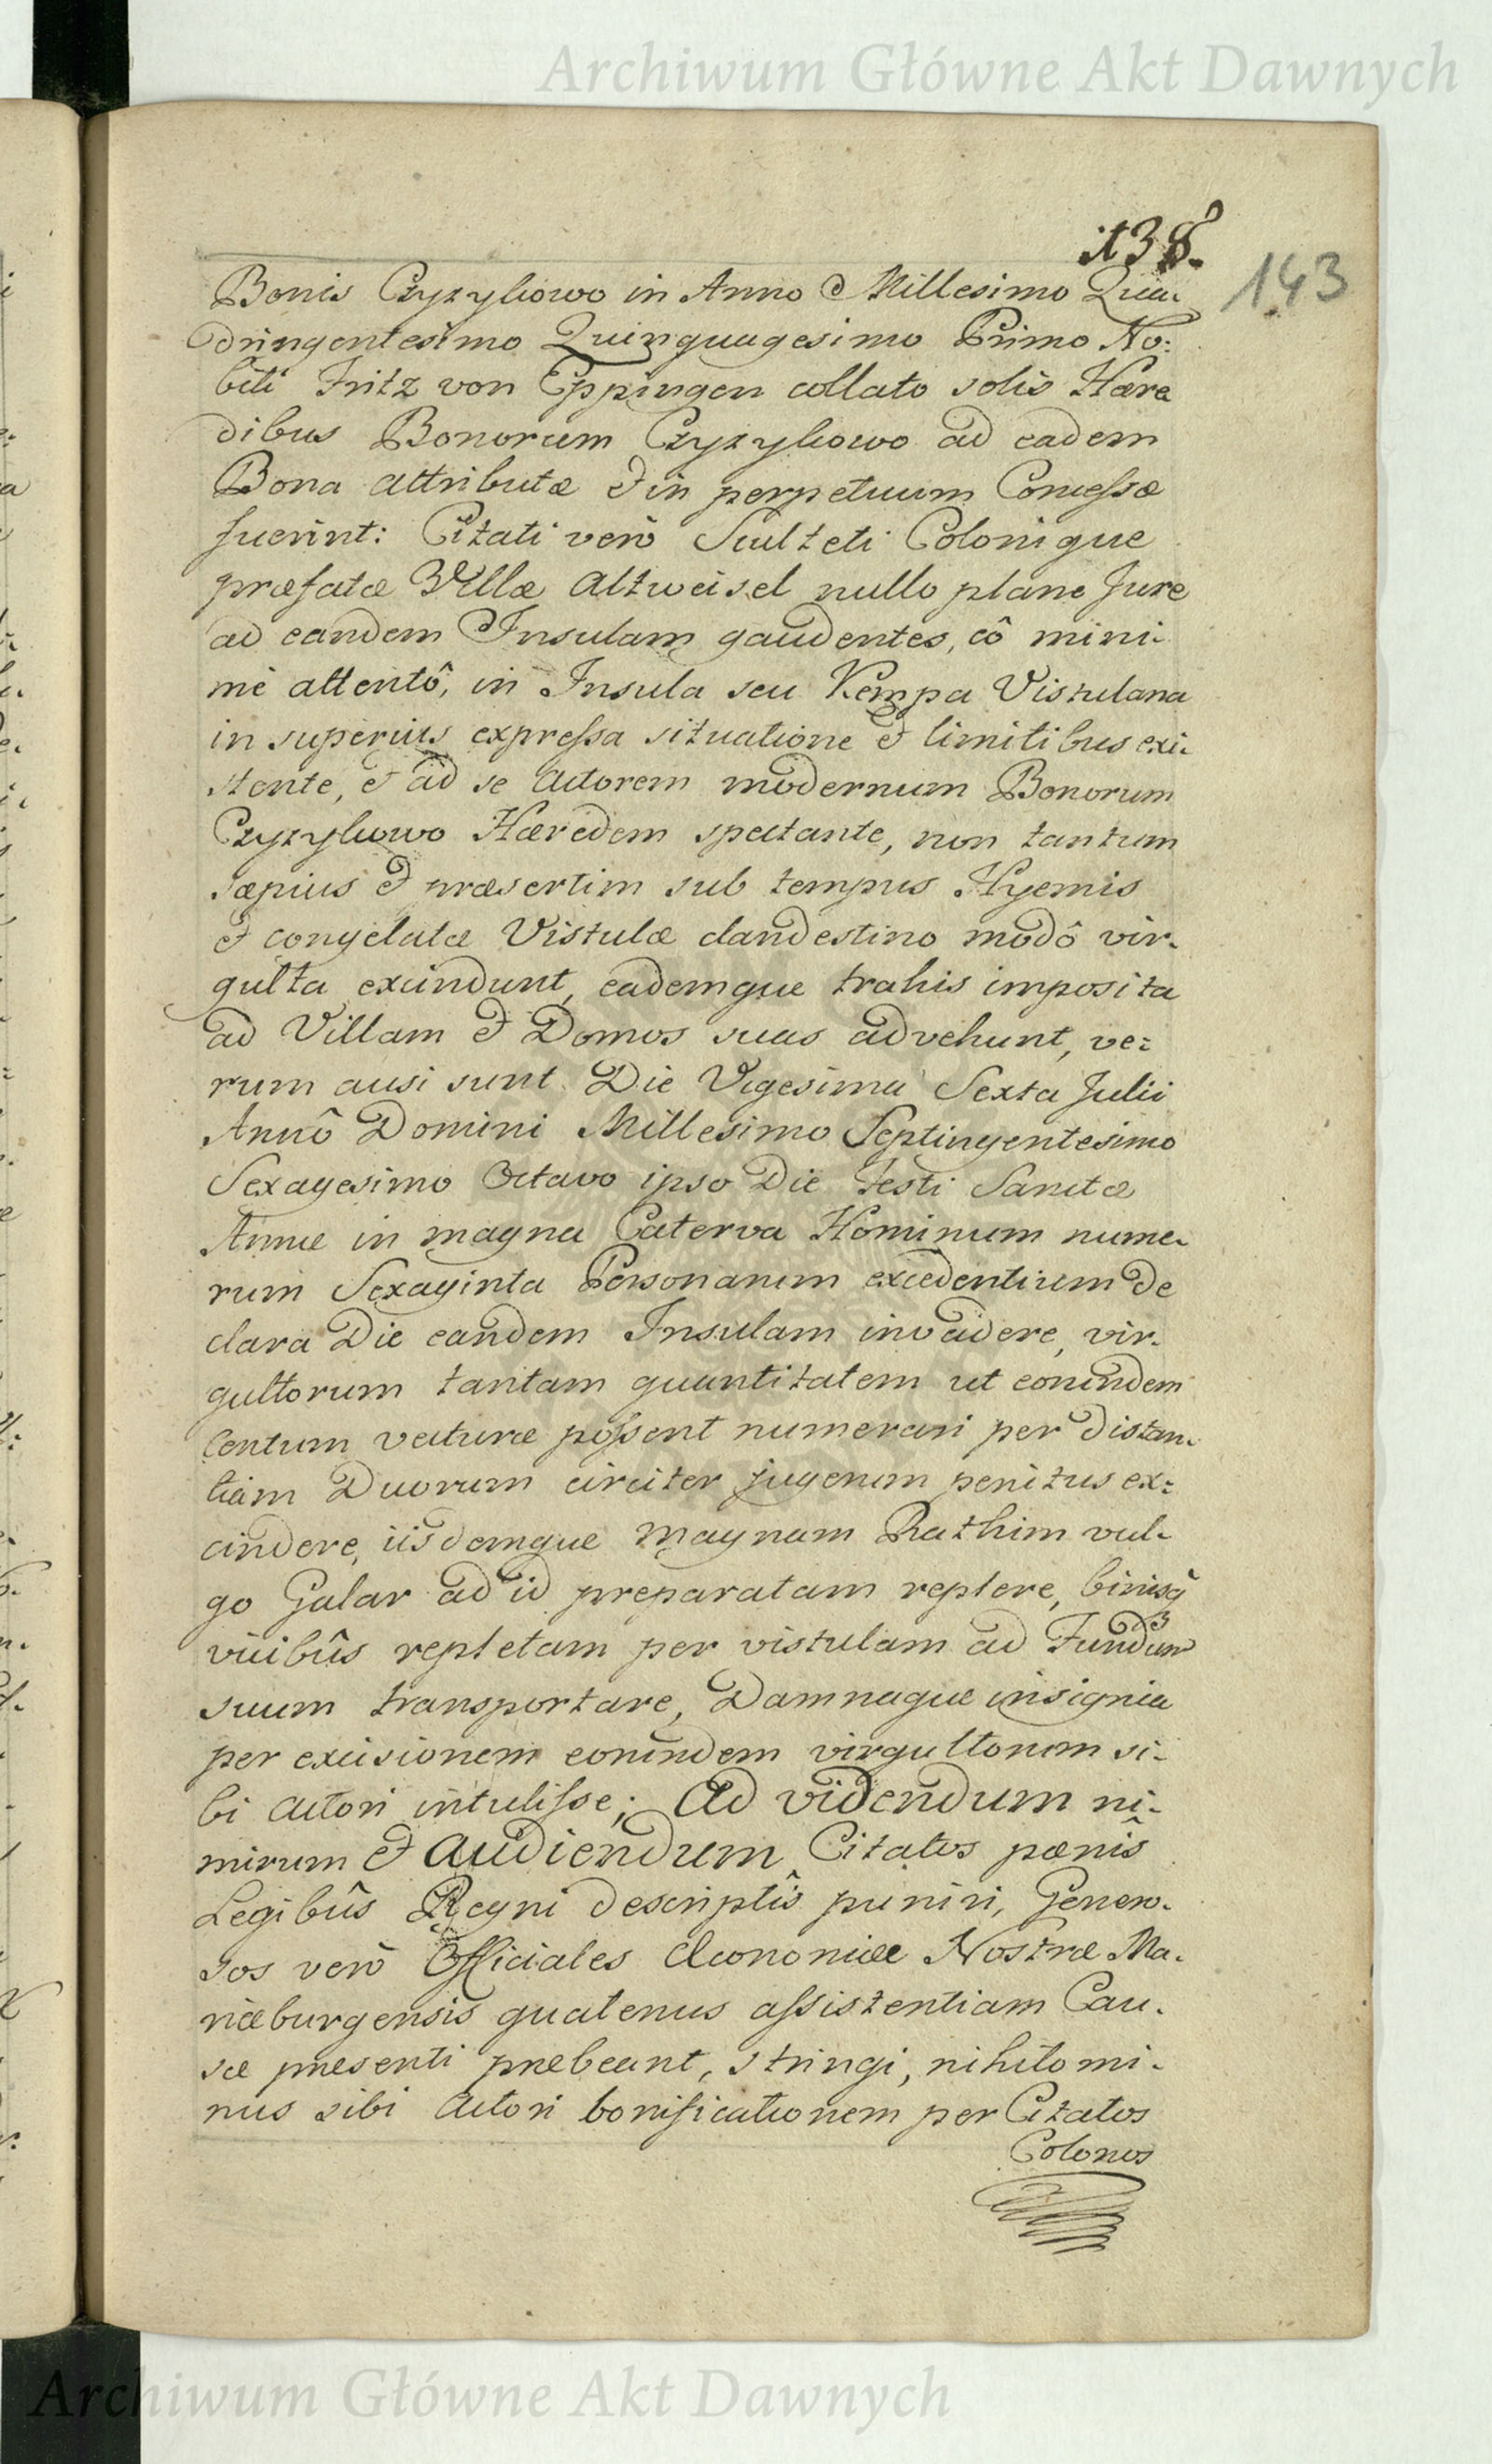 Archiwum Główne Akt Dawnych
138.
143
Bonis Czyzykowo in Anno Millesimo Qua-
dringentesimo Quinquagesimo Primo No:
bili Fritz von Eppingen collato solis Hære
dibus Bonorum Czyzykowo ad eadem
Bona attributæ & in perpetuum Concessæ
fuerint: Citati verò Sculteti Colonique
præfatæ Villæ Altweisel nullo plane Jure
ad eandem Insulam gaudentes, eô mini-
mè attentô, in Insula seu Kempa Vistulana
in superius expressa situatione & limitibus exi-
stente, & ad se Actorem modernum Bonorum
Czyzykowo Hæredem spectante, non tantum
sæpius & præsertim sub tempus Hyemis
& congelatæ Vistulæ clandestino modô vir-
gulta excindunt, eademque trahis imposita
ad Villam & Domos suas advehunt, ve:
rum ausi sunt Die Vigesima Sexta Julii
Annô Domini Millesimo Septingentesimo
Sexagesimo Octavo ipso Die Festi Sanctæ
Annæ in magna Caterva Hominum nume-
rum Sexaginta Personarum excedentium de
clara Die eandem Insulam invadere, vir-
gultorum tantam quantitatem ut eorundem
Centum vecturæ possent numerari per distan-
tiam Duorum circiter jugerum penitus ex:
cindere, iisdemque magnam Rathim vul-
go Galar ad id preparatam replere, binisq̃
vicibûs repletam per vistulam ad Fundum
suum transportare, Damnaque insignia
per excisionem eorundem virgultorum si-
bi Actori intulisse; Ad videndum ni-
mirum & audiendum Citatos pœnîs
Legibûs Regni descriptîs puniri, Genero-
sos verò Officiales Œconomiæ Nostræ Ma-
riæburgensis quatenus assistentiam Cau-
sæ præsenti præbeant, stringi, nihilomi-
nus sibi Actori bonificationem per Citatos
Colonos
Archiwum Główne Akt Dawnych